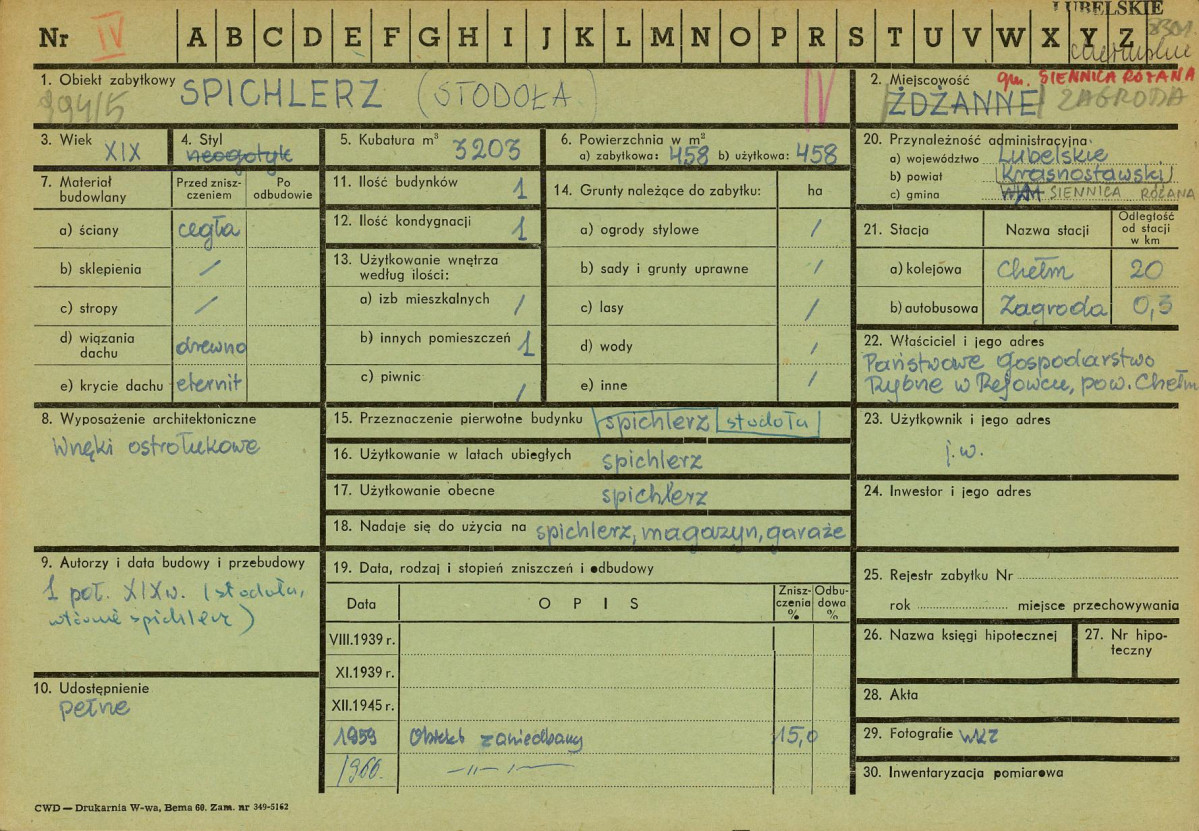 LUBELSKIE
Nr IV A B C D E F G H I J K L M N O P R S T U V W X Y Z
1. Obiekt zabytkowy SPICHLERZ (STODOŁA) IV
994/5
2. Miejscowość gm. SIENNICA RÓŻANA
ŻDŻANNE ZAGRODA
3. Wiek XIX
4. Styl
neogotyk
5. Kubatura m³ 3203
6. Powierzchnia w m²
a) zabytkowa: 458 b) użytkowa: 458
20. Przynależność administracyjna
a) województwo Lubelskie
b) powiat Krasnostawski
c) gmina SIENNICA RÓŻANA
7. Materiał budowlany
Przed znisz-
czeniem
Po
odbudowie
a) ściany cegła
b) sklepienia /
c) stropy /
d) wiązania
dachu drewno
e) krycie dachu eternit
11. Ilość budynków 1
12. Ilość kondygnacji 1
13. Użytkowanie wnętrza
według ilości:
a) izb mieszkalnych /
b) innych pomieszczeń 1
c) piwnic /
14. Grunty należące do zabytku: ha
a) ogrody stylowe /
b) sady i grunty uprawne /
c) lasy /
d) wody /
e) inne /
21. Stacja Nazwa stacji
Odległość
od stacji
w km
a) kolejowa Chełm 20
b) autobusowa Zagroda 0,5
22. Właściciel i jego adres
Państwowe Gospodarstwo
Rybne w Rejowcu, pow. Chełm
8. Wyposażenie architektoniczne
Wnęki ostrołukowe
15. Przeznaczenie pierwotne budynku spichlerz stodoła
16. Użytkowanie w latach ubiegłych spichlerz
17. Użytkowanie obecne spichlerz
18. Nadaje się do użycia na spichlerz, magazyn, garaże
23. Użytkownik i jego adres
j.w.
24. Inwestor i jego adres
9. Autorzy i data budowy i przebudowy
1 poł. XIX w. (stodoła,
wtórnie spichlerz)
10. Udostępnienie
pełne
19. Data, rodzaj i stopień zniszczeń i odbudowy
Data OPIS
Znisz-
czenia
%
Odbu-
dowa
%
VIII.1939 r.
XI.1939 r.
XII.1945 r.
1959 Obiekt zaniedbany 15,0
1960. —〃—
25. Rejestr zabytku Nr
rok miejsce przechowywania
26. Nazwa księgi hipotecznej
27. Nr hipo-
teczny
28. Akta
29. Fotografie WKZ
30. Inwentaryzacja pomiarowa
CWD — Drukarnia W-wa, Bema 60. Zam. nr 349-5162